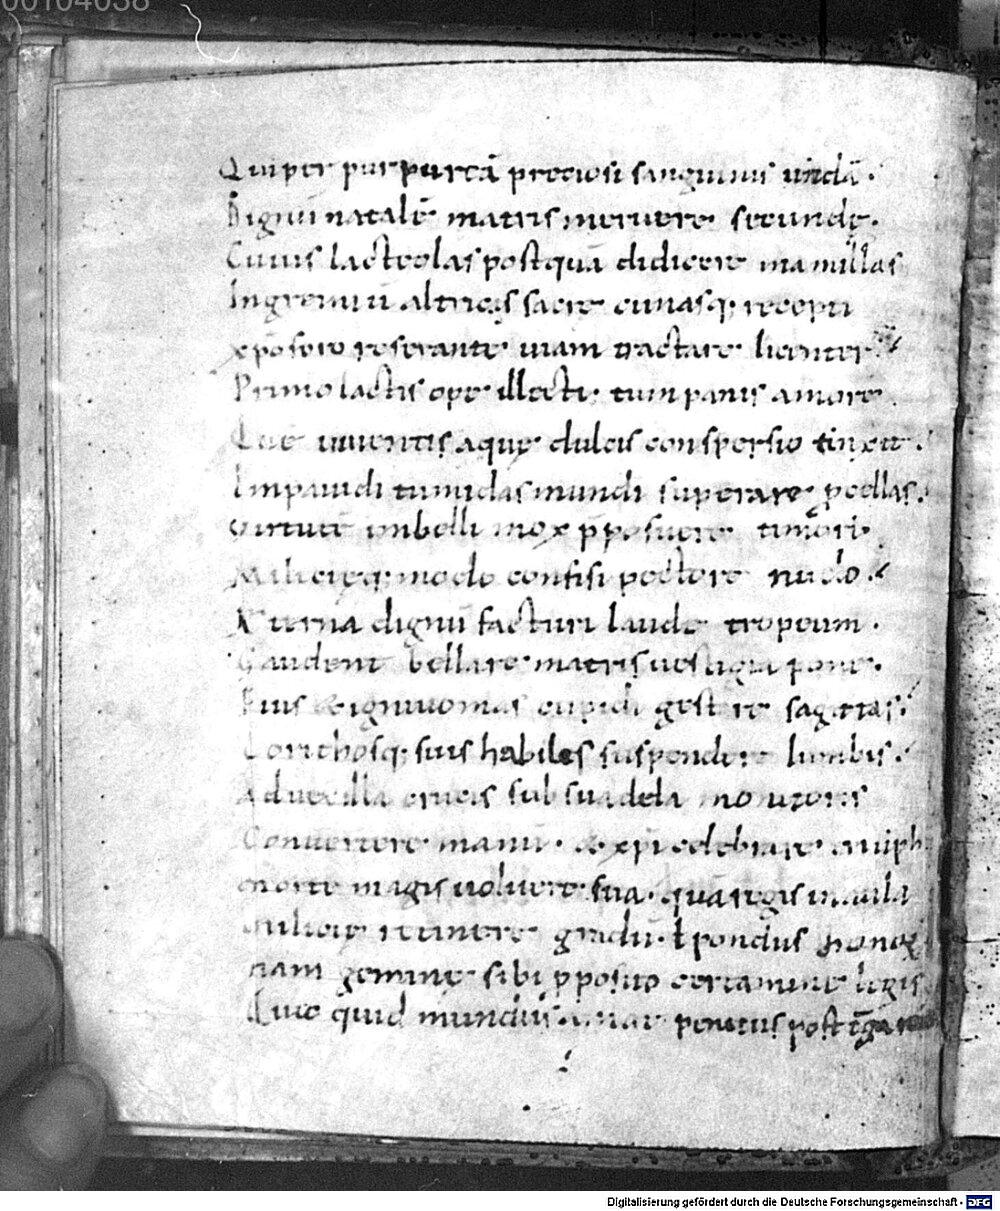 00104038
Qui per purpureā preciosi sanguinis undā.
Digni natalē matris meruere secundę.
Cuius lacteolas postquā didicere mamillas
Ingremiū altricis sacrę cunasq; recepti
xp̄o fore reserante uiam tractare licenter
Primo lactis ope illecti. tum panis amore.
Quē uiuentis aquę dulcis conspersio tinxit.
Impauidi tumidas mundi superare pcellas.
Virtutē imbelli mox p̄posuere timori.
Militięq; modo confisi pectore nudo.
Aeterna dignū facturi laude tropeum.
Gaudent bellare matris uestigia pone.
Eius & igniuomas cupidi gestare sagittas.
Corithosq; suis habiles suspendere lumbis.
Ad uexilla crucis sub suadela monitoris
Conuertere manū. & xp̄i celebrare
morte magis uoluere sua. quā regis in aula
militię retinere gradū. ł pondus
nam geminę sibi pposito certamine legis
Quę quid mundus amat penitus post